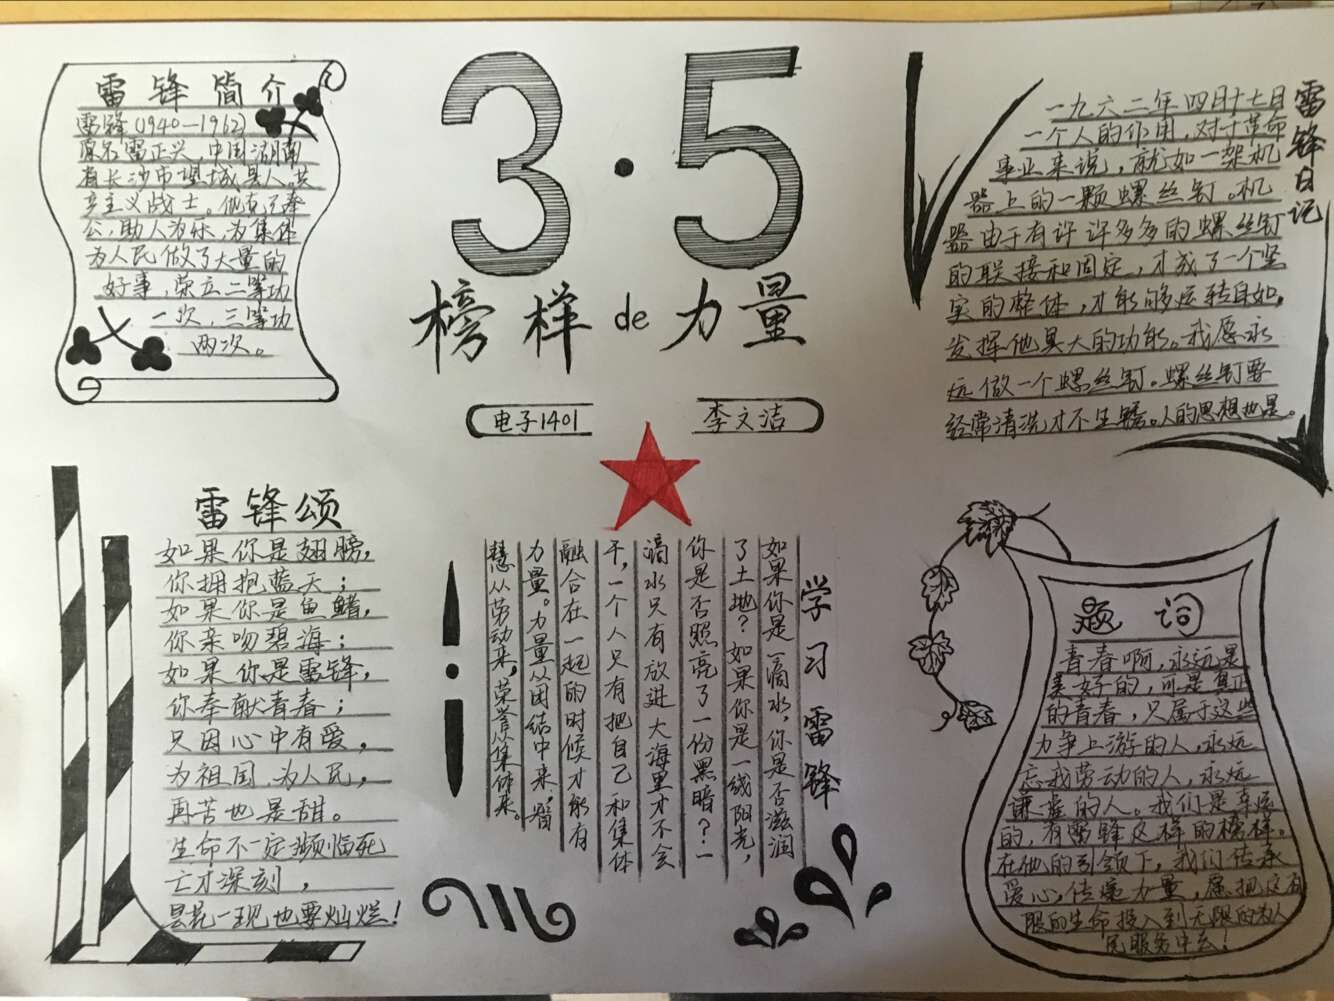 雷锋简介
雷锋(1940—1962)
原名雷正兴,中国湖南
省长沙市望城县人,共
产主义战士。他克己奉
公,助人为乐,为集体
为人民做了大量的
好事,荣立二等功
一次,三等功
两次。
3·5
榜样de力量
电子1401
李文洁
雷锋日记
一九六二年四月十七日
一个人的作用,对于革命
事业来说,就如一架机
器上的一颗螺丝钉。机
器由于有许许多多的螺丝钉
的联接和固定,才成了一个坚
实的整体,才能够运转自如,
发挥他具大的功能。我愿永
远做一个螺丝钉。螺丝钉要
经常清洗才不生锈。人的思想也是。
雷锋颂
如果你是翅膀,
你拥抱蓝天;
如果你是鱼鳍,
你亲吻碧海;
如果你是雷锋,
你奉献青春;
只因心中有爱,
为祖国,为人民,
再苦也是甜。
生命不一定濒临死
亡才深刻,
昙花一现也要灿烂!
学习雷锋
如果你是一滴水,你是否滋润
了土地?如果你是一线阳光,
你是否照亮了一份黑暗?一
滴水只有放进大海里才不会
干,一个人只有把自己和集体
融合在一起的时候才能有
力量。力量从团结中来,智
慧从劳动来,荣誉从集体来。
题词
青春啊,永远是
美好的,可是真正
的青春,只属于这些
力争上游的人,永远
忘我劳动的人,永远
谦虚的人。我们是幸运
的,有雷锋这样的榜样。
在他的引领下,我们传承
爱心,传递力量,愿把这有
限的生命投入到无限的为人
民服务中去!